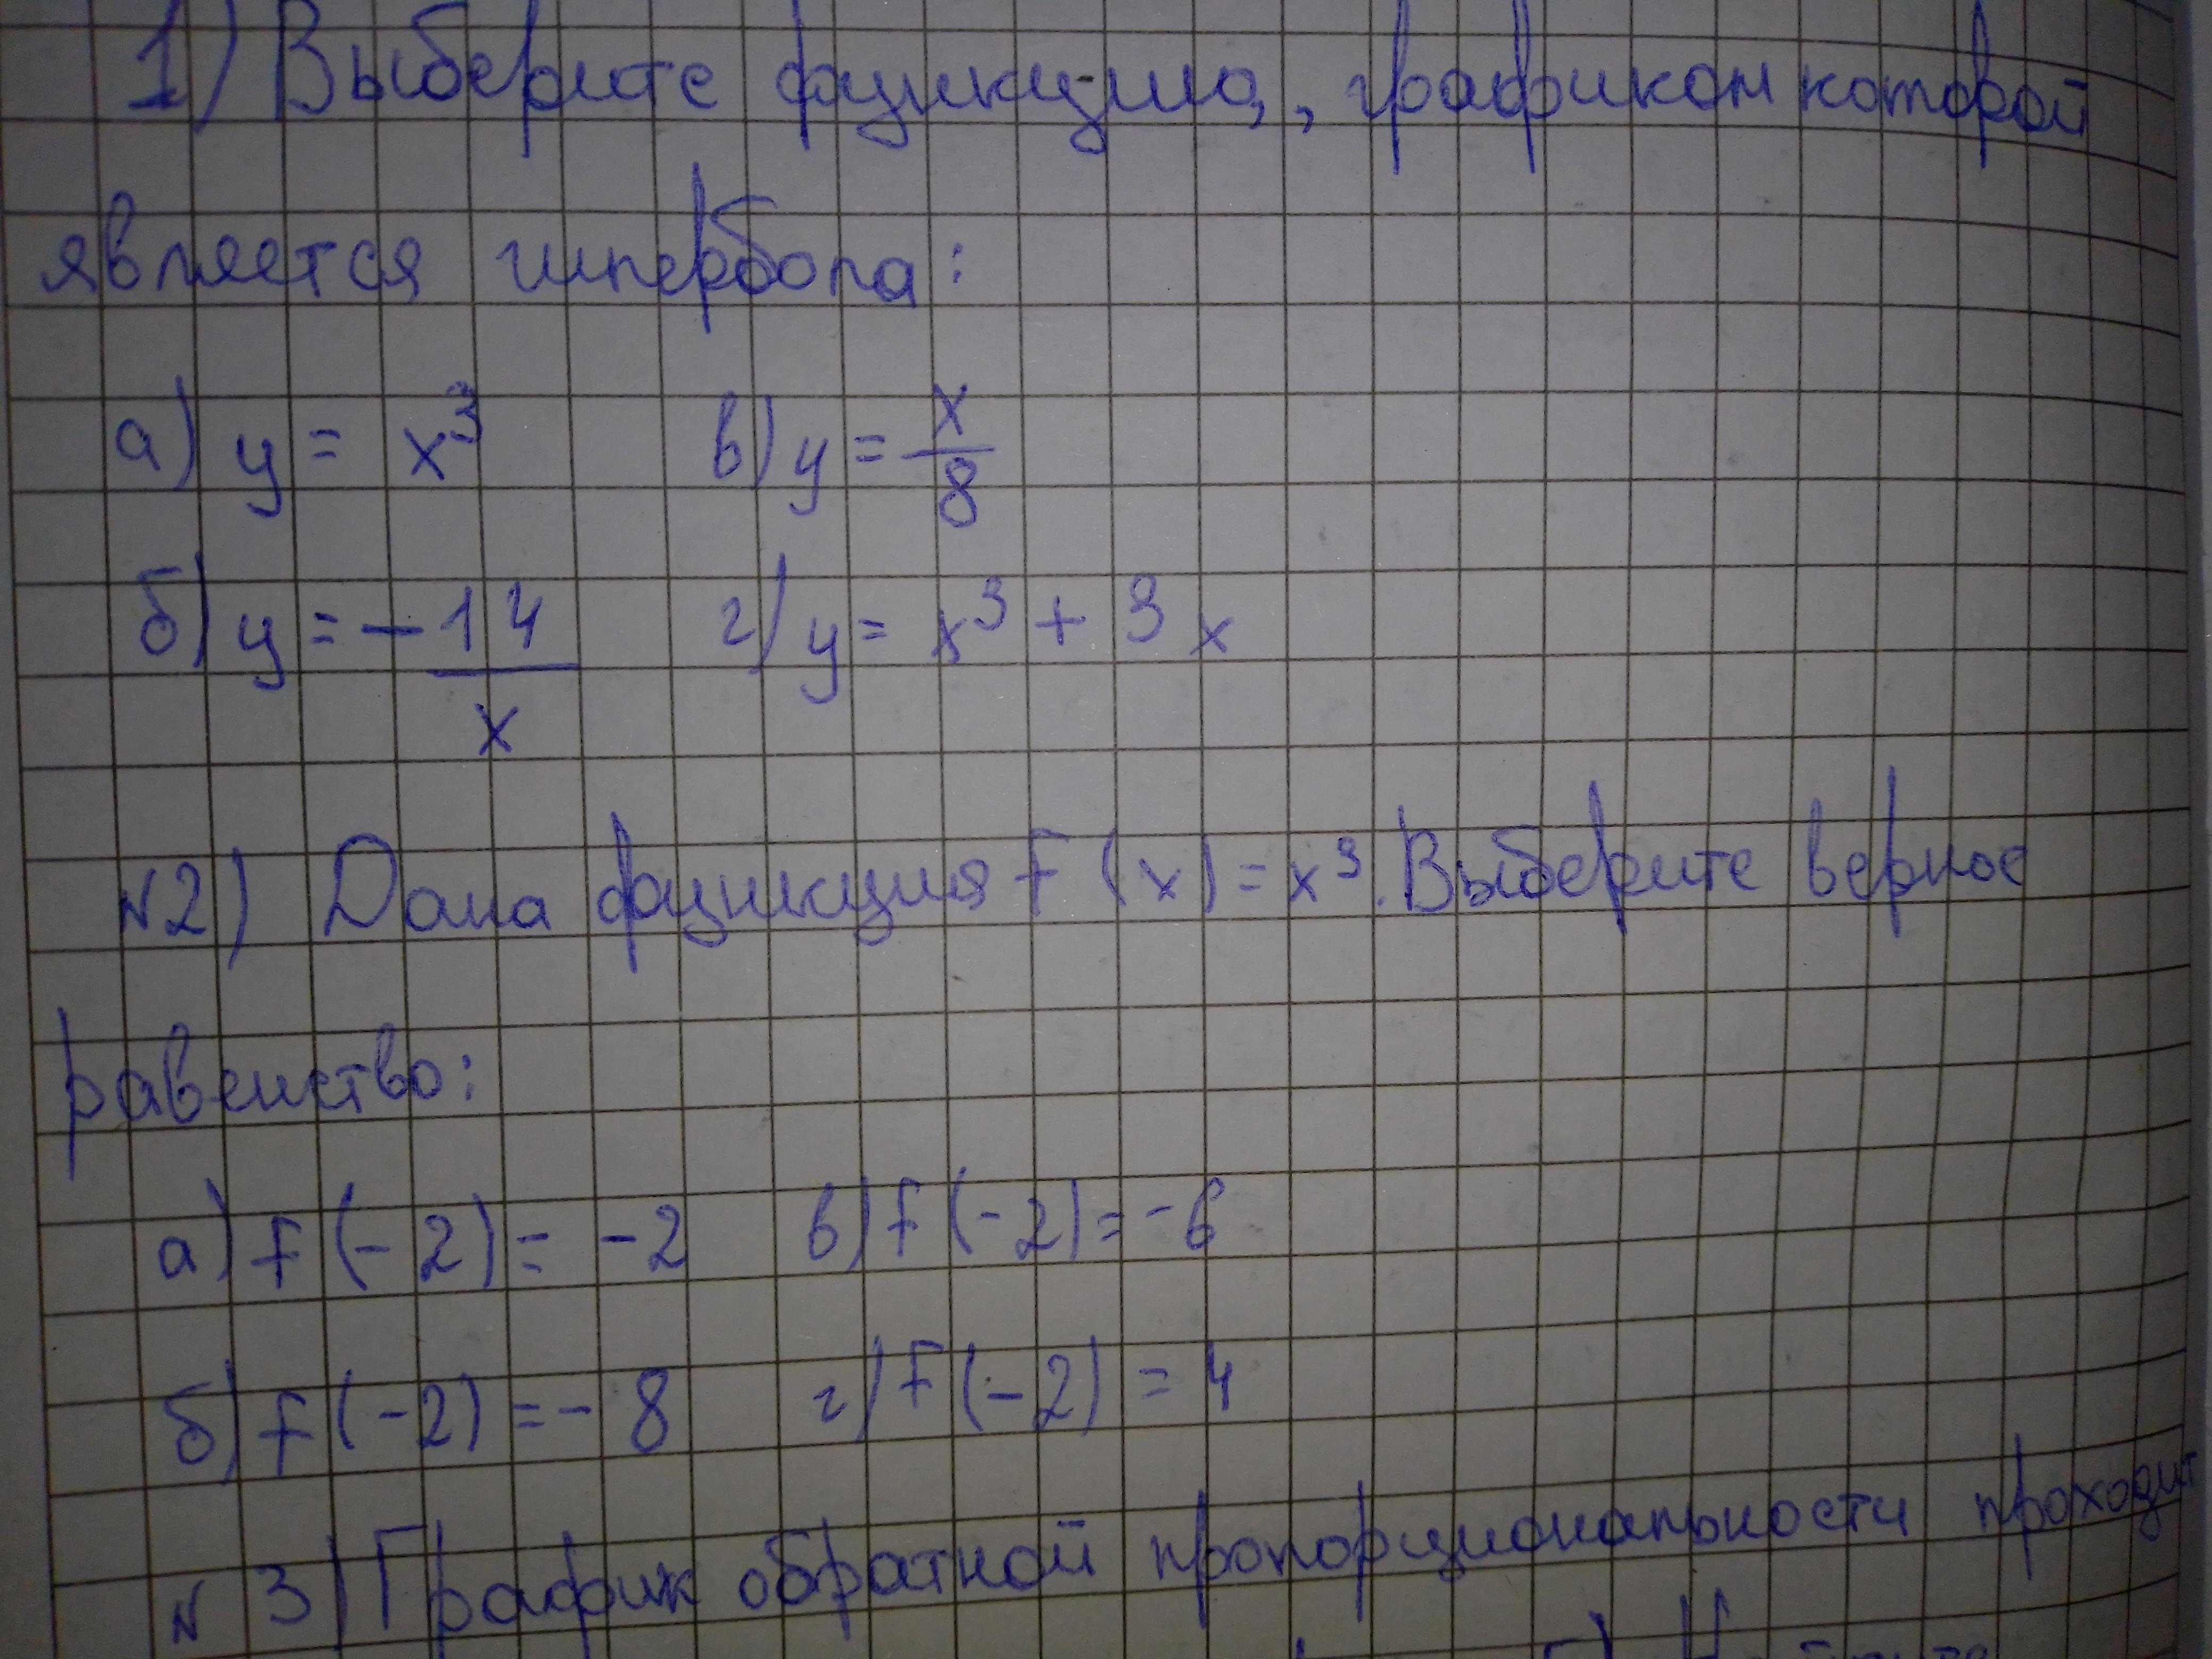 1) Выберите функцию, графиком которой
является гипербола:
а) y = x³ в) y = x/8
б) y = -14/x г) y = x³ + 3x
N2) Дана функция F(x) = x³. Выберите верное
равенство:
а) F(-2) = -2 в) F(-2) = -6
б) F(-2) = -8 г) F(-2) = 4
N 3) График обратной пропорциональности проходит